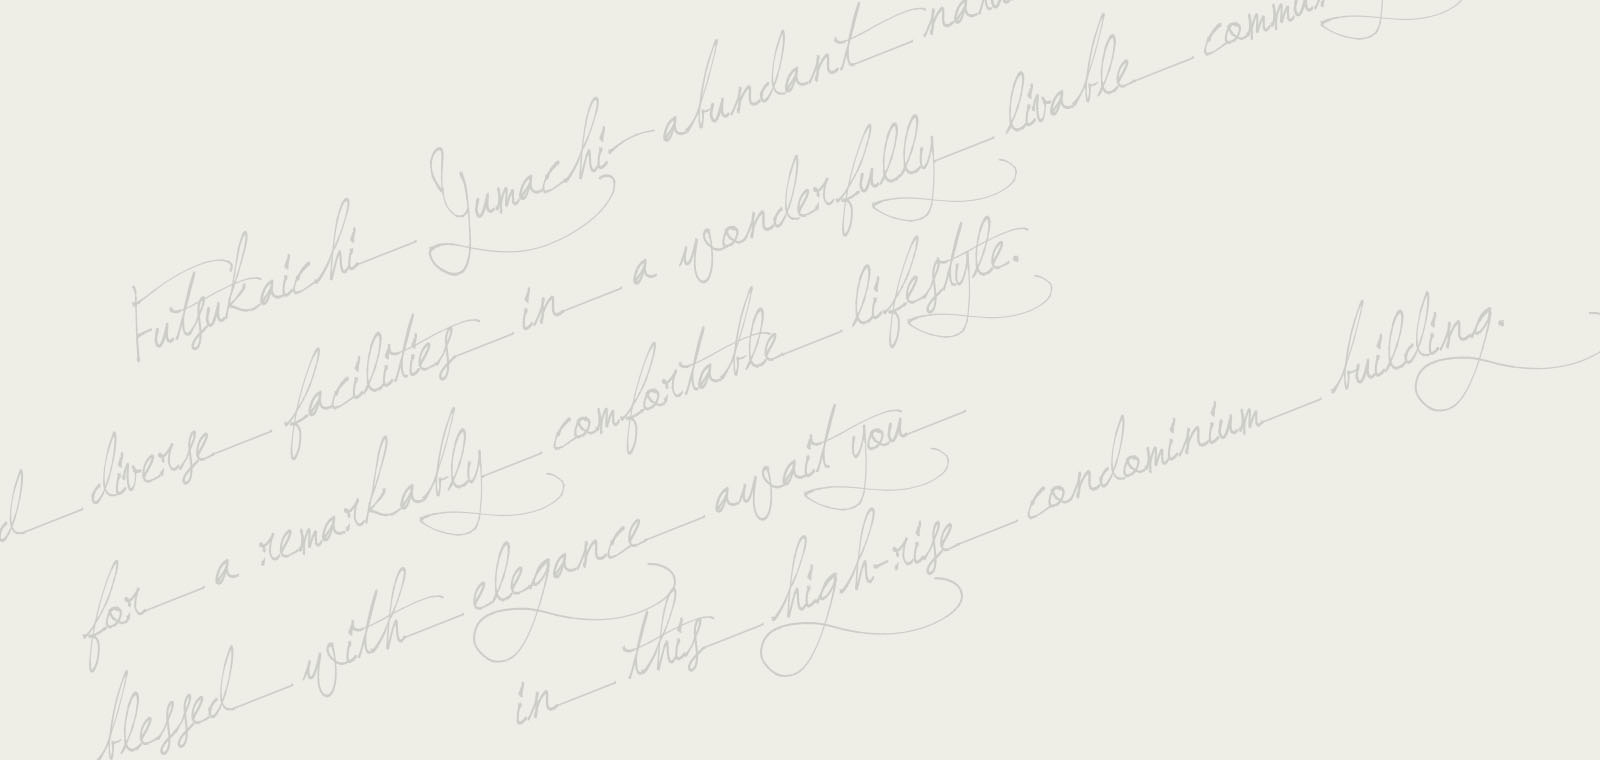 Futsukaichi Yumachi abundant
diverse facilities in a wonderfully livable
for a remarkably comfortable lifestyle.
blessed with elegance await you
in this high-rise condominium building.